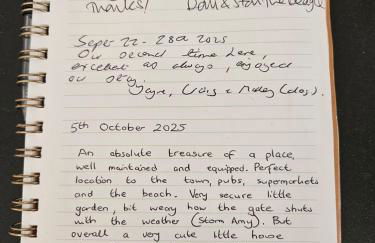 Thanks! Dan & Stan the Beagle
Sept 22 - 28th 2025
Our second time here,
excellent as always, enjoyed
our stay.
Jayne, Craig & (dog).
5th October 2025
An absolute treasure of a place,
well maintained and equipped. Perfect
location to the town, pubs, supermarkets
and the beach. Very secure little
garden, bit weary how the gate shuts
with the weather (Storm Amy). But
overall a very cute little house